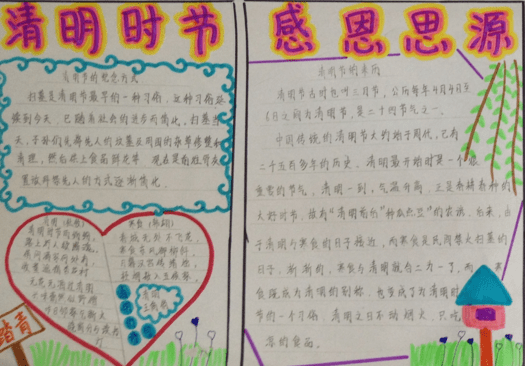 清明时节
清明节的纪念方式
扫墓是清明节最早的一种习俗，这种习俗延
续到今天，已随着社会的进步而简化，扫墓当
天，子孙们先将先人的坟墓及周围的杂草修整和
清理，然后供上食品鲜花等
清明
清明时节雨纷纷，
路上行人欲断魂。
借问酒家何处有，
牧童遥指杏花村
寒食
春城无处不飞花，
寒食东风御柳斜。
日暮汉宫传蜡烛，
轻烟散入五侯家。
踏青
感恩思源
清明节的来历
清明节古时也叫三月节，公历每年4月4日至
6日之间为清明节，是二十四节气之一。
中国传统的清明节大约始于周代，已有
二千五百多年的历史。清明最开始时是一个很
重要的节气，清明一到，气温升高，正是春耕春种的
大好时节，故有“清明前后，种瓜点豆”的农谚。后来，由
于清明与寒食的日子接近，而寒食是民间禁火扫墓的
日子，渐渐的，寒食与清明就合二为一了，而寒
食既成为清明的别称，也变成了为清明时
节的一个习俗，清明之日不动烟火，只吃
凉的食品。